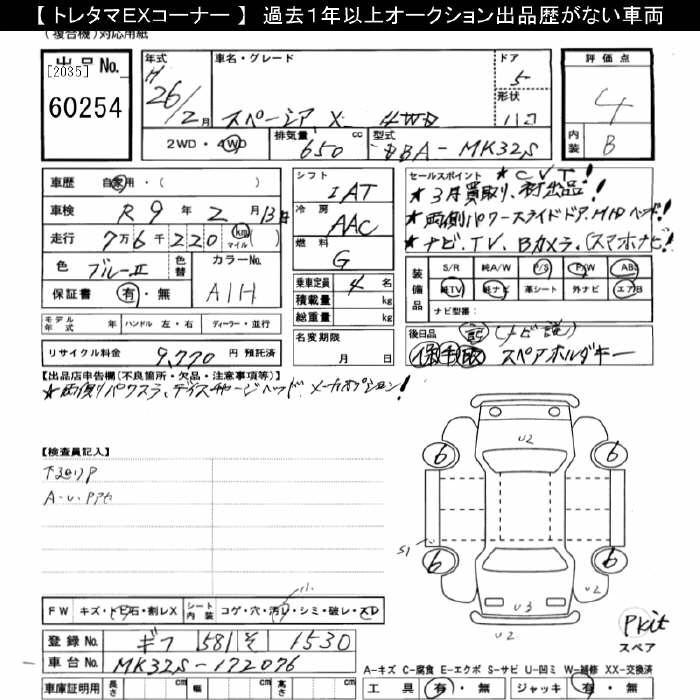 【 トレタマEXコーナー 】 過去1年以上オークション出品歴がない車両
(複合機)対応用紙
出品No. [2035]
60254
年式 H 26/2月
車名・グレード スペーシア X 4WD
ドア 5
形状
評価点 4
内装 B
2WD・4WD 排気量 650 cc 型式 DBA-MK32S
車歴 自家用・( )
車検 R 9 年 2 月 13日
走行 7万6千220 km マイル ( )
色 ブルーⅡ 色替 カラーNo.
保証書 有・無 A1H
モデル年式 年 ハンドル 左・右 ディーラー・並行
リサイクル料金 9,770 円 預託済
シフト IAT
冷房 AAC
燃料 G
乗車定員 4 名
積載量 kg
総重量 kg
名変期限
月 日
セールスポイント ★CVT!
★3月買取り、初出品!
★両側パワースライドドア、HIDヘッド!
★ナビ、TV、Bカメラ、(スマホナビ!
装備品 S/R 純A/W P/S P/W ABS
純TV 純ナビ 革シート 外ナビ エアB
ナビ型番:
後日品 記 (ナビ説)
保 手 取 スペアホルダキー
【出品店申告欄(不良箇所・欠品・注意事項等)】
★両側パワスラ、ディスチャージヘッド、メーカオプション!
【検査員記入】
A-U-PP
U2
6
6
S1
6
6
U2
U3
U2
FW キズ・トビ石・割レX シート内装 コゲ・穴・汚レ・シミ・破レ・スレ
登録No. ギフ 581 そ 1530
車台No. MK32S-172076
車庫証明用 長さ cm 幅 cm 高さ cm
Pkit
スペア
A-キズ C-腐食 E-エクボ S-サビ U-凹ミ W-補修 XX-交換済
工具 有・無 ジャッキ 有・無